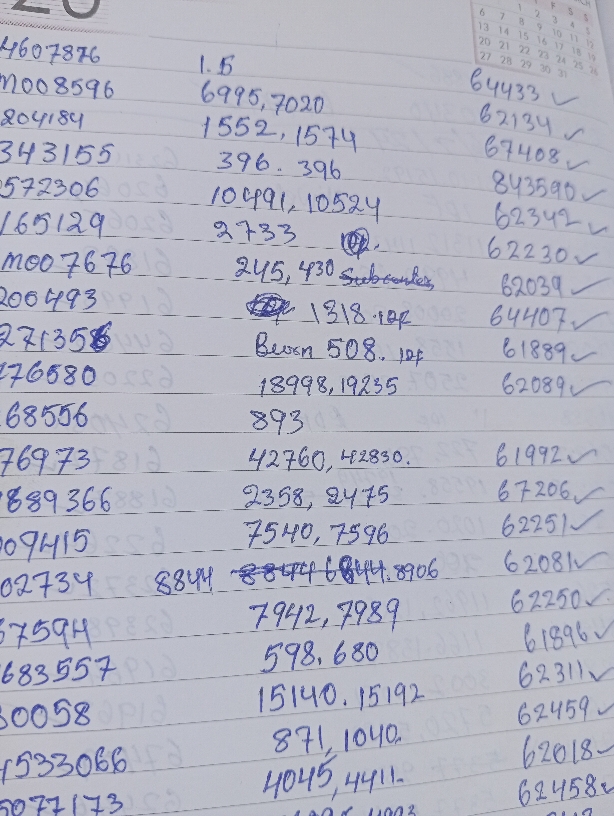 4607876 1.5 64433 ✓
M008596 6995, 7020 62134 ✓
204184 1552, 1574 67408 ✓
343155 396. 396 843590 ✓
572306 10491, 10524 62342 ✓
165129 2733 62230 ✓
M007676 245, 430 62039 ✓
200493 1318. IDF 64407 ✓
271356 Bevon 508. IDF 61889 ✓
776580 18998, 19235 62089 ✓
68556 893
76973 42760, 42830. 61992 ✓
889366 2358, 2475 67206 ✓
09415 7540, 7596 62251 ✓
02734 8844, 8906 62081 ✓
7594 7942, 7989 62250 ✓
683557 598. 680 61896 ✓
30058 15140. 15192 62311 ✓
4533066 871, 1040. 62459 ✓
5077173 4045, 4411. 62018 ✓
62458 ✓